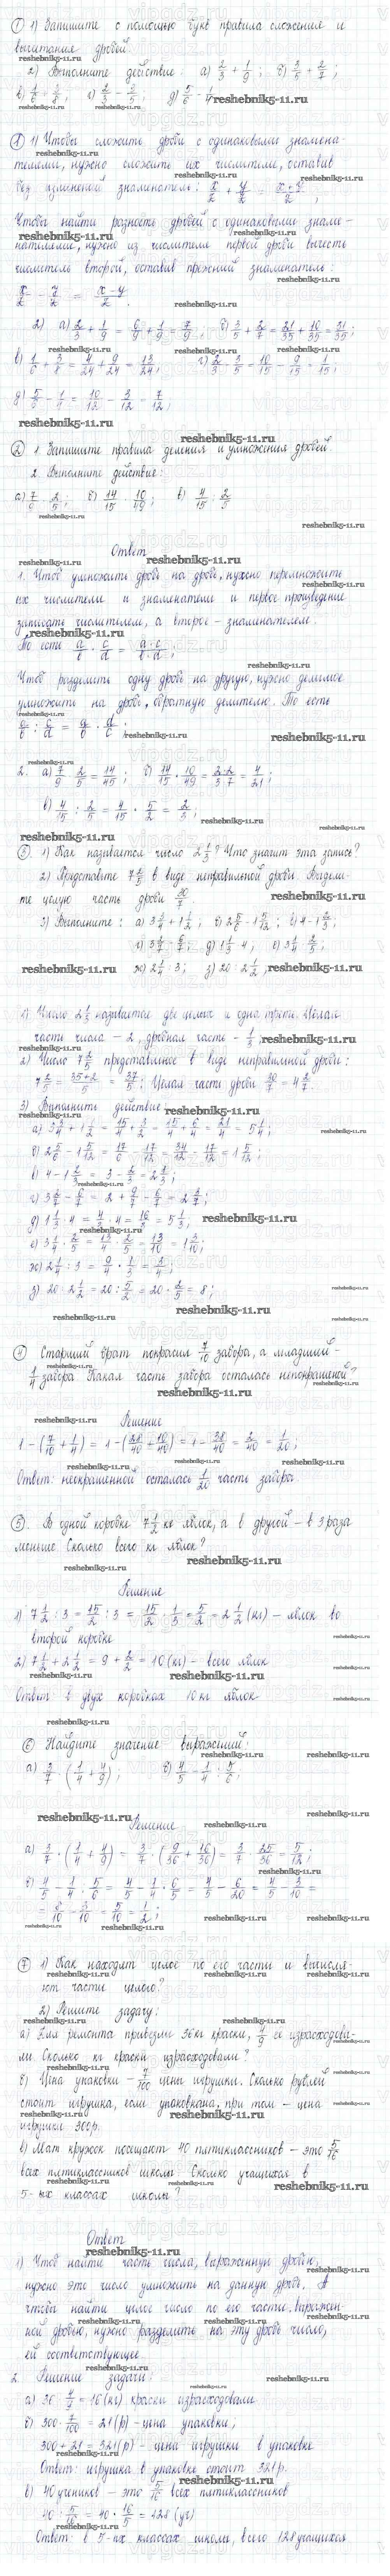 ① 1) Запишите с помощью букв правила сложения и
вычитания дробей.
2) Выполните действие: а) 2/3 + 1/9; б) 3/5 + 2/7;
в) 1/6 + 3/8; г) 2/3 - 3/5; д) 5/6 - 1/4
reshebnik5-11.ru
① 1) Чтобы сложить дроби с одинаковыми знамена-
телями, нужно сложить их числители, оставив
без изменений знаменатель: x/z + y/z = x+y/z;
Чтобы найти разность дробей с одинаковыми знаме-
нателями, нужно из числителя первой дроби вычесть
числитель второй, оставив прежний знаменатель:
x/z - y/z = x-y/z.
2) а) 2/3 + 1/9 = 6/9 + 1/9 = 7/9; б) 3/5 + 2/7 = 21/35 + 10/35 = 31/35;
в) 1/6 + 3/8 = 4/24 + 9/24 = 13/24; г) 2/3 - 3/5 = 10/15 - 9/15 = 1/15;
д) 5/6 - 1/4 = 10/12 - 3/12 = 7/12;
② 1. Запишите правила деления и умножения дробей.
2. Выполните действие:
а) 7/9 · 2/5; б) 14/15 · 10/49; в) 4/15 : 2/5
Ответ
1. Чтоб умножить дробь на дробь, нужно перемножить
их числители и знаменатели и первое произведение
записать числителем, а второе - знаменателем.
То есть a/b · c/d = a·c/b·d;
Чтоб разделить одну дробь на другую, нужно делимое
умножить на дробь, обратную делителю. То есть
a/b : c/d = a/b · d/c;
2. а) 7/9 · 2/5 = 14/45; б) 14/15 · 10/49 = 2·2/3·7 = 4/21;
в) 4/15 : 2/5 = 4/15 · 5/2 = 2/3;
③ 1) Как называется число 2 1/3? Что значит эта запись?
2) Представьте 7 2/5 в виде неправильной дроби. Выдели-
те целую часть дроби 30/7
3) Выполните: а) 3 3/4 + 1 1/2; б) 2 5/6 - 1 5/12; в) 4 - 1 2/3;
г) 3 2/7 - 6/7; д) 1 1/3 · 4; е) 3 1/4 · 2/5;
ж) 2 1/4 : 3; з) 20 : 2 1/2;
1) Число 2 1/3 называется две целых и одна треть. Целая
часть числа - 2, дробная часть - 1/3;
2) Число 7 2/5 представленное в виде неправильной дроби:
7 2/5 = 35+2/5 = 37/5; Целая часть дроби 30/7 = 4 2/7.
3) Выполнить действие:
а) 3 3/4 + 1 1/2 = 15/4 + 3/2 = 15/4 + 6/4 = 21/4 = 5 1/4;
б) 2 5/6 - 1 5/12 = 17/6 - 17/12 = 34/12 - 17/12 = 1 5/12;
в) 4 - 1 2/3 = 3 - 2/3 = 2 1/3;
г) 3 2/7 - 6/7 = 2 + 9/7 - 6/7 = 2 3/7;
д) 1 1/3 · 4 = 4/3 · 4 = 16/3 = 5 1/3;
е) 3 1/4 · 2/5 = 13/4 · 2/5 = 13/10 = 1 3/10;
ж) 2 1/4 : 3 = 9/4 · 1/3 = 3/4;
з) 20 : 2 1/2 = 20 : 5/2 = 20 · 2/5 = 8;
④ Старший брат покрасил 7/10 забора, а младший -
1/4 забора. Какая часть забора осталась непокрашеной?
Решение
1 - (7/10 + 1/4) = 1 - (28/40 + 10/40) = 1 - 38/40 = 2/40 = 1/20;
Ответ: неокрашенной осталась 1/20 часть забора.
⑤. В одной коробке 7 1/2 кг яблок, а в другой - в 3 раза
меньше. Сколько всего кг яблок?
Решение
1) 7 1/2 : 3 = 15/2 : 3 = 15/2 · 1/3 = 5/2 = 2 1/2 (кг) - яблок во
второй коробке
2) 7 1/2 + 2 1/2 = 9 + 2/2 = 10 (кг) - всего яблок
Ответ: в двух коробках 10 кг яблок
⑥ Найдите значение выражений:
а) 3/7 · (1/4 + 4/9); б) 4/5 - 1/4 : 5/6;
Решение
а) 3/7 · (1/4 + 4/9) = 3/7 · (9/36 + 16/36) = 3/7 · 25/36 = 5/12;
б) 4/5 - 1/4 : 5/6 = 4/5 - 1/4 · 6/5 = 4/5 - 6/20 = 4/5 - 3/10 =
= 8/10 - 3/10 = 5/10 = 1/2;
⑦ 1) Как находят целое по его части и вычисля-
ют части целого?
2) Решите задачу:
а) Для ремонта привезли 36 кг краски, 4/9 её израсходова-
ли. Сколько кг краски израсходовали?
б) Цена упаковки - 7/100 цены игрушки. Сколько рублей
стоит игрушка, если упакована, при том - цена
игрушки 300 р.
в) Мат кружок посещают 40 пятиклассников - это 5/16
всех пятиклассников школы. Сколько учащихся в
5-ых классах школы?
Ответ
1) Чтоб найти часть числа, выраженную дробью,
нужно это число умножить на данную дробь. А
чтобы найти целое число по его части, выражен-
ной дробью, нужно разделить на эту дробь число,
ей соответствующее
2. Решение задачи:
а) 36 · 4/9 = 16 (кг) краски израсходовали.
б) 300 · 7/100 = 21 (р) - цена упаковки;
300 + 21 = 321 (р) - цена игрушки в упаковке
Ответ: игрушка в упаковке стоит 321 р.
в) 40 учеников - это 5/16 всех пятиклассников
40 : 5/16 = 40 · 16/5 = 128 (уч)
Ответ: в 5-ых классах школы, всего 128 учащихся